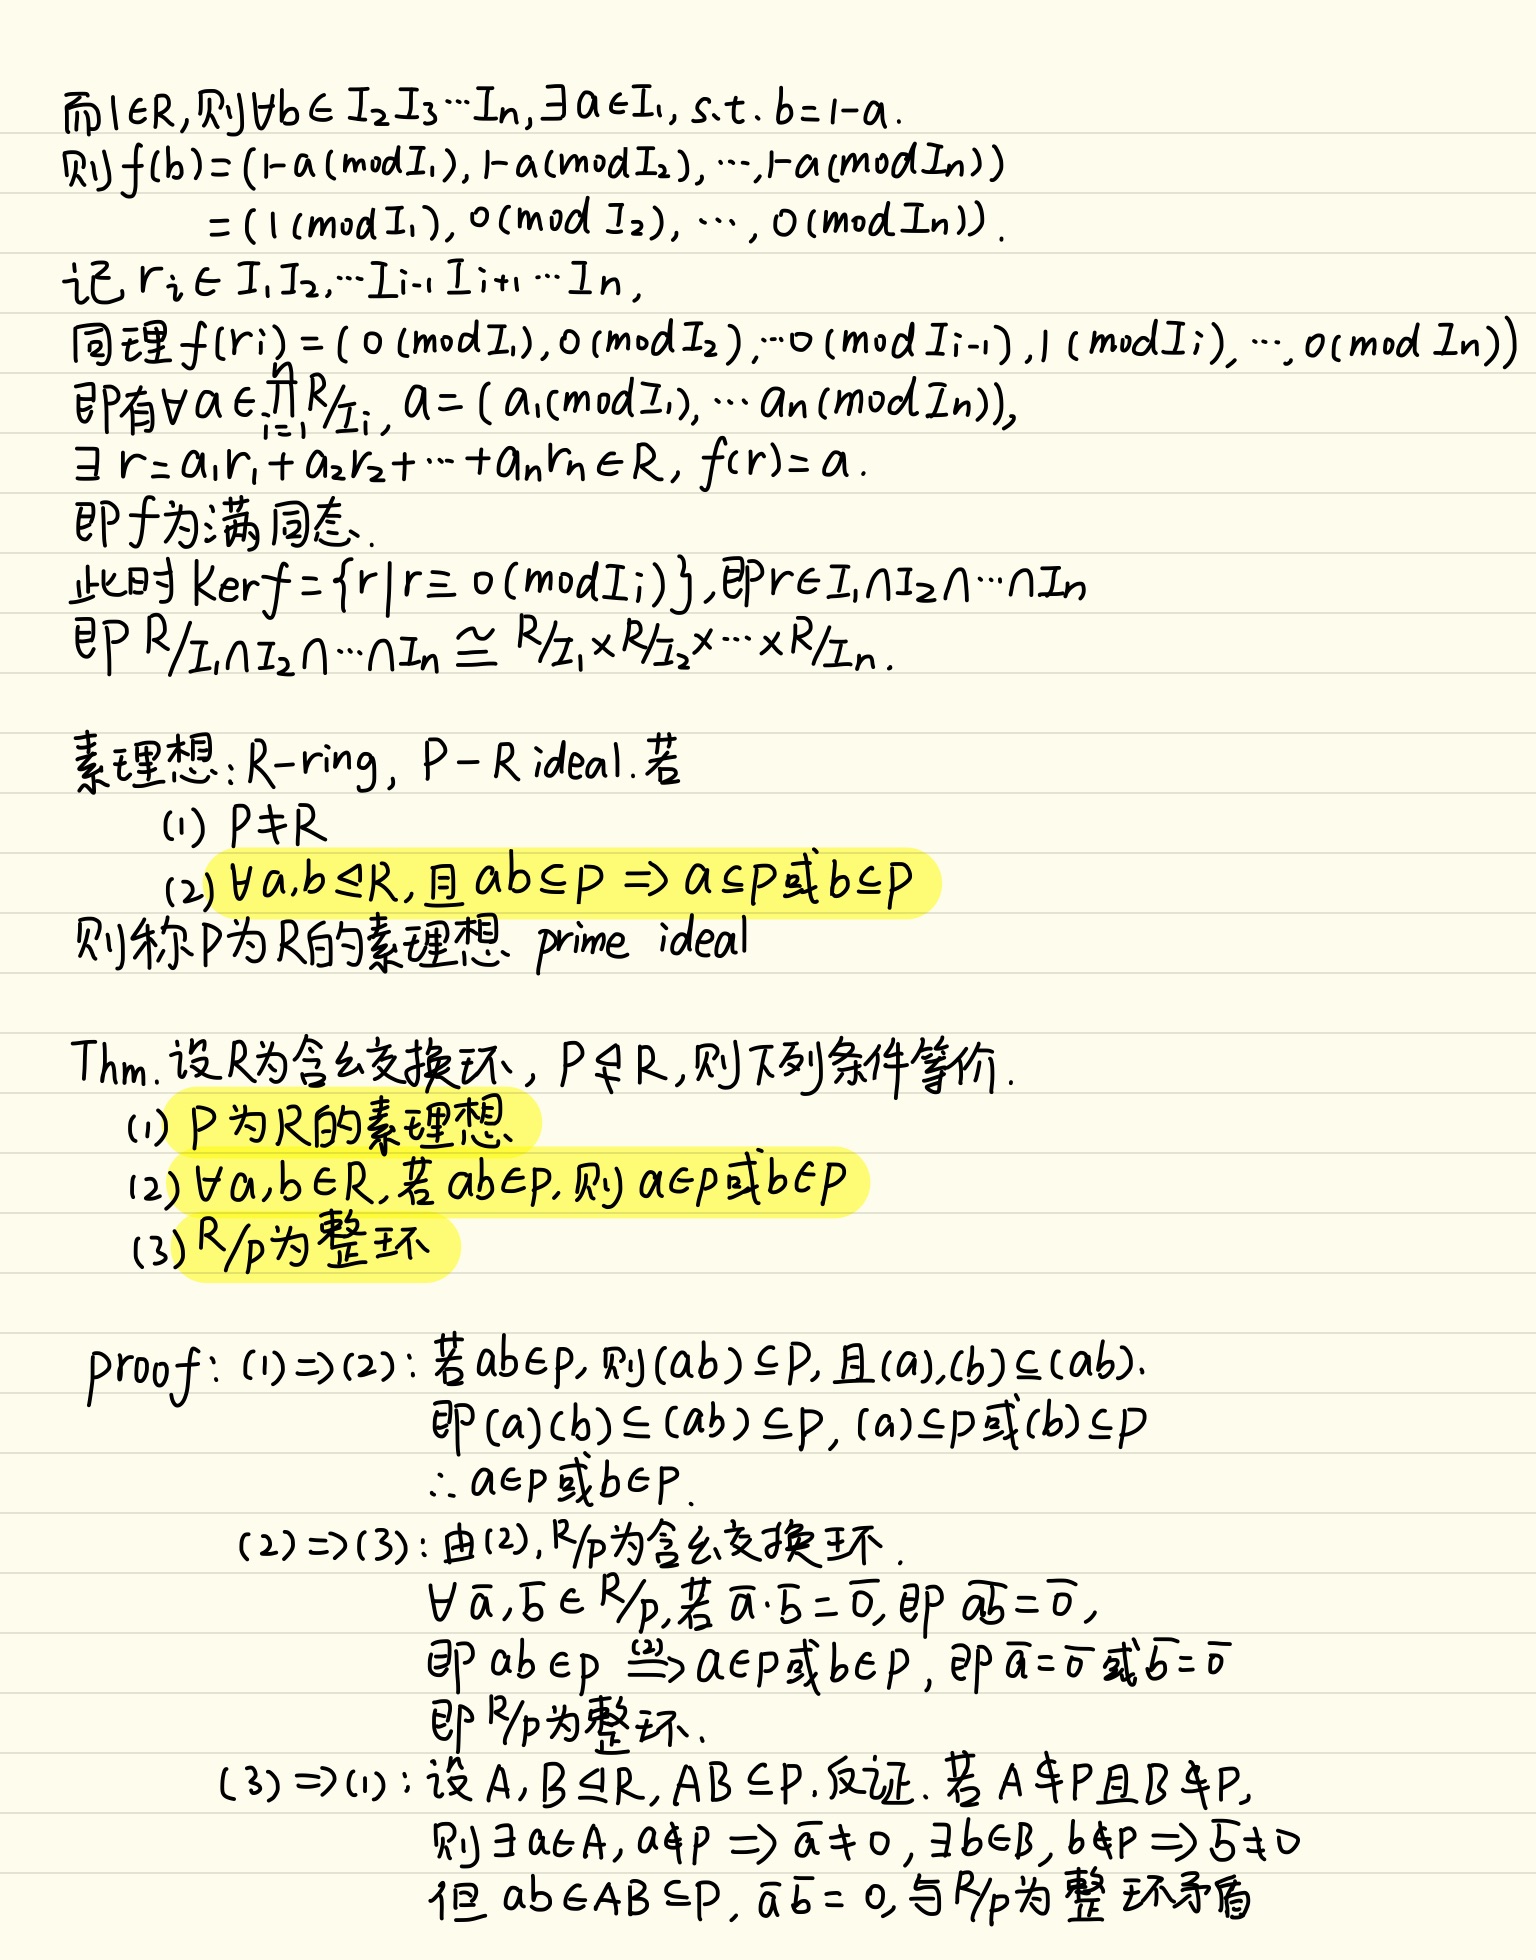 而1∈R,则∀b∈I₂I₃⋯Iₙ,∃a∈I₁, s.t. b=1-a.
则f(b)=(1-a(modI₁),1-a(modI₂),⋯,1-a(modIₙ))
=(1(modI₁),0(modI₂),⋯,0(modIₙ)).
记rᵢ∈I₁I₂,⋯Iᵢ₋₁Iᵢ₊₁⋯Iₙ,
同理f(rᵢ)=(0(modI₁),0(modI₂),⋯0(modIᵢ₋₁),1(modIᵢ),⋯,0(modIₙ))
即有∀a∈∏ⁿᵢ₌₁R/Iᵢ, a=(a₁(modI₁),⋯aₙ(modIₙ)),
∃r=a₁r₁+a₂r₂+⋯+aₙrₙ∈R, f(r)=a.
即f为满同态.
此时Kerf={r|r≡0(modIᵢ)},即r∈I₁∩I₂∩⋯∩Iₙ
即R/I₁∩I₂∩⋯∩Iₙ≅R/I₁×R/I₂×⋯×R/Iₙ.
素理想:R-ring, P-R ideal.若
(1) P≠R
(2) ∀a,b⊴R,且ab⊆P⇒a⊆P或b⊆P
则称P为R的素理想 prime ideal
Thm.设R为含幺交换环,P⋬R,则下列条件等价.
(1) P为R的素理想
(2) ∀a,b∈R,若ab∈P,则a∈P或b∈P
(3) R/P为整环
proof: (1)⇒(2): 若ab∈P,则(ab)⊆P,且(a),(b)⊆(ab).
即(a)(b)⊆(ab)⊆P,(a)⊆P或(b)⊆P
∴a∈P或b∈P.
(2)⇒(3): 由(2),R/P为含幺交换环.
∀a̅,b̅∈R/P,若a̅·b̅=0̅,即a̅b̅=0̅,
即ab∈P ⇒(2) a∈P或b∈P,即a̅=0̅或b̅=0̅
即R/P为整环.
(3)⇒(1): 设A,B⊴R,AB⊆P.反证.若A⊈P且B⊈P,
则∃a∈A,a∉P⇒a̅≠0,∃b∈B,b∉P⇒b̅≠0
但ab∈AB⊆P,a̅b̅=0,与R/P为整环矛盾